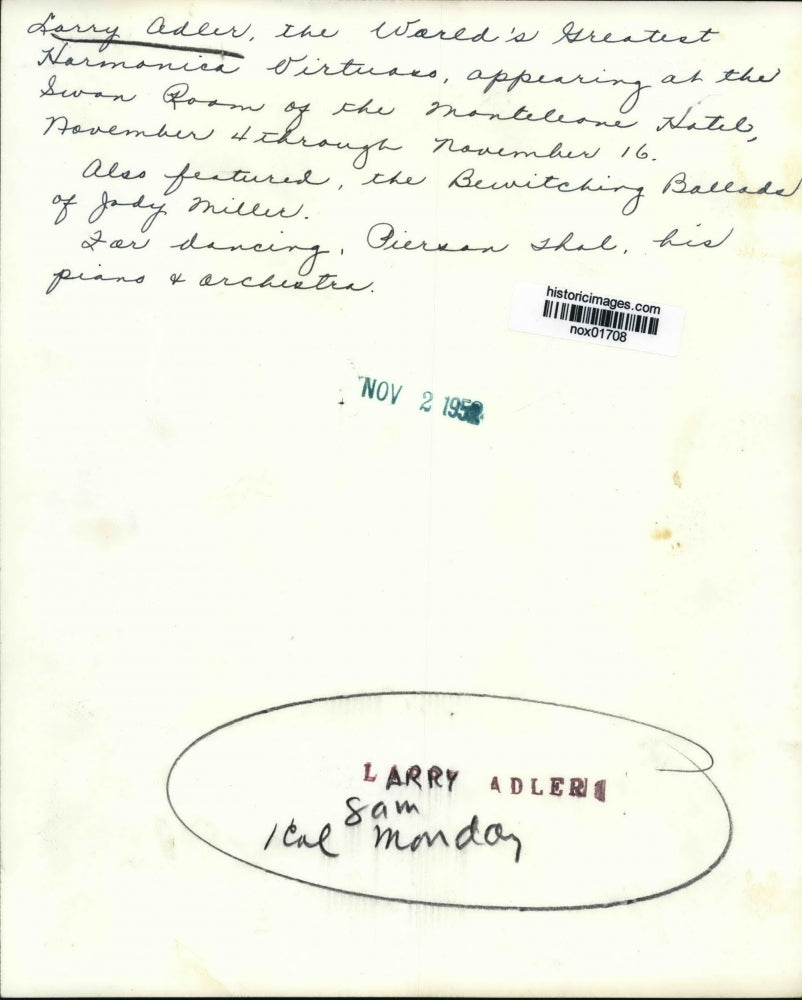 Larry Adler, the World's Greatest
Harmonica Virtuoso, appearing at the
Swan Room of the Monteleone Hotel,
November 4 through November 16.
Also featured, the Bewitching Ballads
of Jody Miller.
For dancing, Pierson Thal, his
piano & orchestra.
historicimages.com
nox01708
NOV 2 195
LARRY ADLER
Sam
1 Col Monday